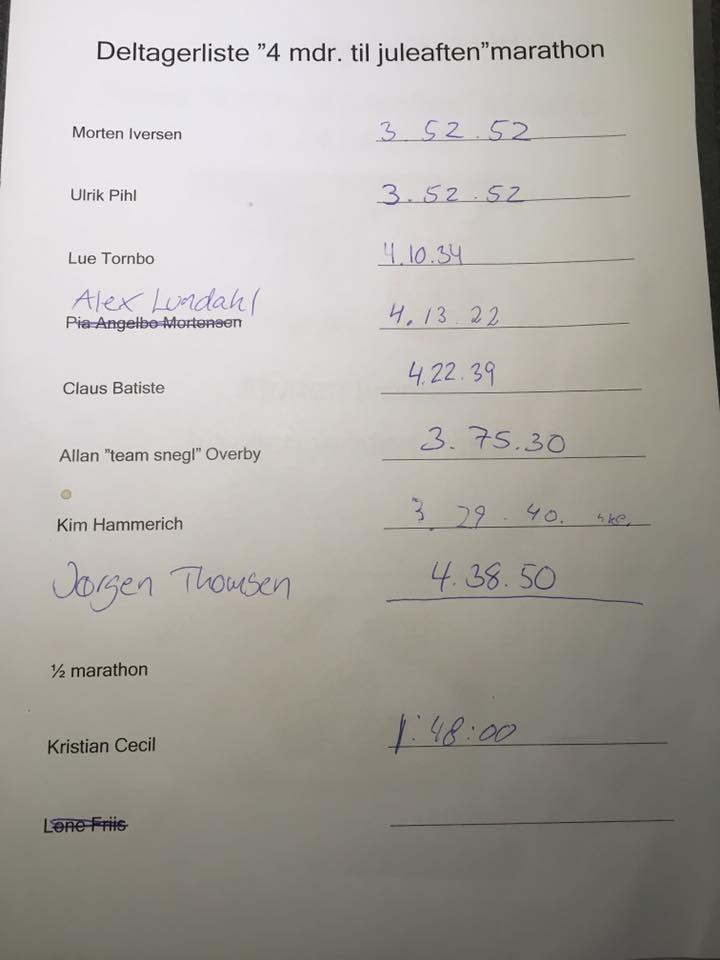 Deltagerliste ”4 mdr. til juleaften”marathon
Morten Iversen 3.52.52
Ulrik Pihl 3.52.52
Lue Tornbo 4.10.34
Alex Lundahl
Pia Angelbo Mortensen 4.13.22
Claus Batiste 4.22.39
Allan ”team snegl” Overby 3.75.30
Kim Hammerich 3.29.40.
Jørgen Thomsen 4.38.50
½ marathon
Kristian Cecil 1:48:00
Lone Friis